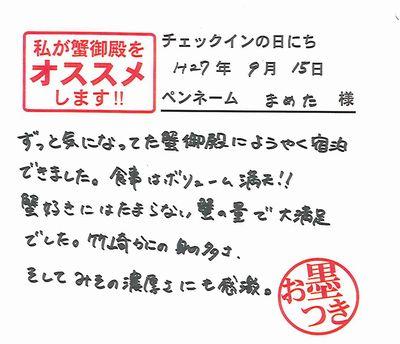 私が蟹御殿を
オススメ
します!!
チェックインの日にち
H27年 9月 15日
ペンネーム まめた 様
ずっと気になってた蟹御殿にようやく宿泊
できました。食事はボリューム満天!!
蟹好きにはたまらない蟹の量で大満足
でした。竹崎かにの身の多さ、
そしてみその濃厚さにも感激。
お墨つき